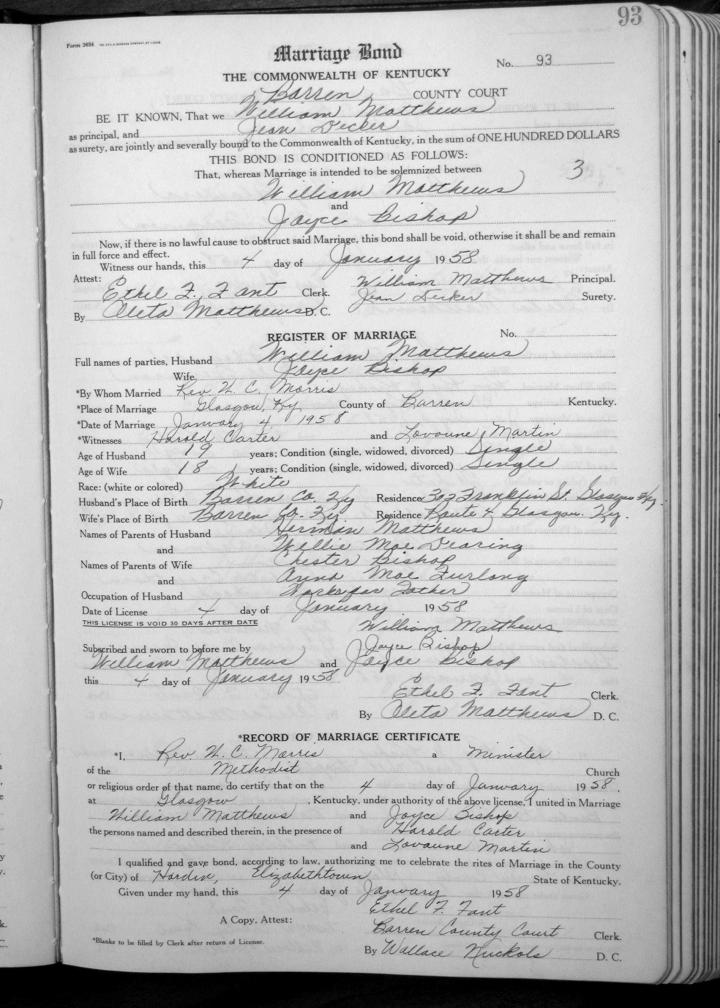 93
Form 2684
Marriage Bond
No. 93
THE COMMONWEALTH OF KENTUCKY
Barren COUNTY COURT
BE IT KNOWN, That we William Matthews
as principal, and Jean Decker
as surety, are jointly and severally bound to the Commonwealth of Kentucky, in the sum of ONE HUNDRED DOLLARS
THIS BOND IS CONDITIONED AS FOLLOWS:
That, whereas Marriage is intended to be solemnized between 3
William Matthews
and
Joyce Bishop
Now, if there is no lawful cause to obstruct said Marriage, this bond shall be void, otherwise it shall be and remain
in full force and effect.
Witness our hands, this 4 day of January 1958
Attest: William Matthews Principal.
Ethel F. Fant Clerk. Jean Decker Surety.
By Oleta Matthews D. C.
REGISTER OF MARRIAGE No.
Full names of parties, Husband William Matthews
Wife Joyce Bishop
*By Whom Married Rev. W. C. Morris
*Place of Marriage Glasgow, Ky County of Barren Kentucky.
*Date of Marriage January 4 1958
*Witnesses Harold Carter and Lovaune Martin
Age of Husband 19 years; Condition (single, widowed, divorced) Single
Age of Wife 18 years; Condition (single, widowed, divorced) Single
Race: (white or colored) White
Husband's Place of Birth Barren Co. Ky Residence 303 Franklin St. Glasgow Ky.
Wife's Place of Birth Barren Co. Ky. Residence Route 4 Glasgow, Ky.
Names of Parents of Husband Herman Matthews
and Willie Mae Dearing
Names of Parents of Wife Chester Bishop
and Anna Mae Furlong
Occupation of Husband Works for Father
Date of License 4 day of January 1958
THIS LICENSE IS VOID 30 DAYS AFTER DATE William Matthews
Subscribed and sworn to before me by Joyce Bishop
William Matthews and Joyce Bishop
this 4 day of January 1958
Ethel F. Fant Clerk.
By Oleta Matthews D. C.
*RECORD OF MARRIAGE CERTIFICATE
*I, Rev. W. C. Morris a Minister
of the Methodist Church
or religious order of that name, do certify that on the 4 day of January 1958,
at Glasgow, Kentucky, under authority of the above license, I united in Marriage
William Matthews and Joyce Bishop
the persons named and described therein, in the presence of Harold Carter
and Lovaune Martin
I qualified and gave bond, according to law, authorizing me to celebrate the rites of Marriage in the County
(or City) of Hardin, Elizabethtown State of Kentucky.
Given under my hand, this 4 day of January 1958
Ethel F. Fant
A Copy, Attest: Barren County Court Clerk.
*Blanks to be filled by Clerk after return of License. By Wallace Nuckols D. C.